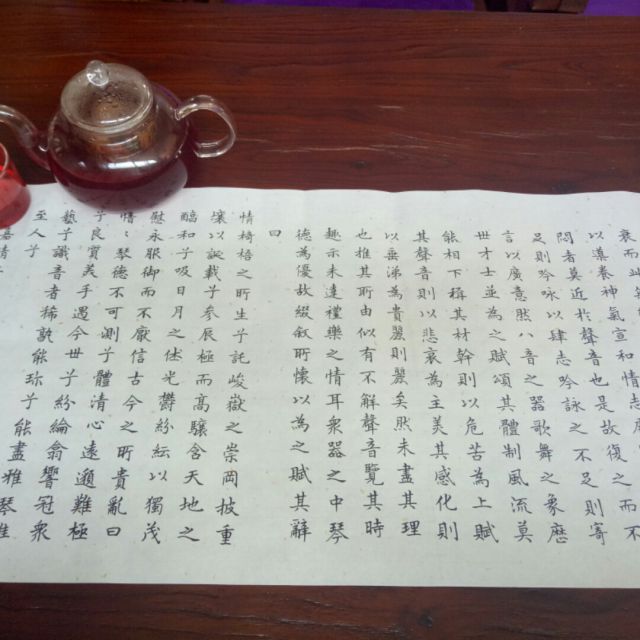 衰而此
以導養神氣宣和情志
悶者莫近於聲音也是故復之而不
足則吟咏以肆志吟詠之不足則寄
言以廣意然八音之器歌舞之象歷
世才士並為之賦頌其體制風流莫
能相下稱其材幹則以危苦為上賦
其聲音則以悲哀為主美其感化則
以垂涕為貴麗則麗矣然未盡其理
也推其所由似有不解聲音覽其時
趣示未達禮樂之情耳衆器之中琴
德為優故綴叙所懷以為之賦其辭
曰
情椅梧之所生子託峻嶽之崇岡披重
壤以誕載子參辰極而高驤含天地之
醕和子吸日月之休光鬱紛紜以獨茂
慰永服御而不厭信古今之所貴亂曰
愔愔琴德不可測子體清心遠邈難極
子良質美手遇今世子紛綸翕響冠衆
藝子識音者稀孰能珍子能盡雅琴唯
至人子